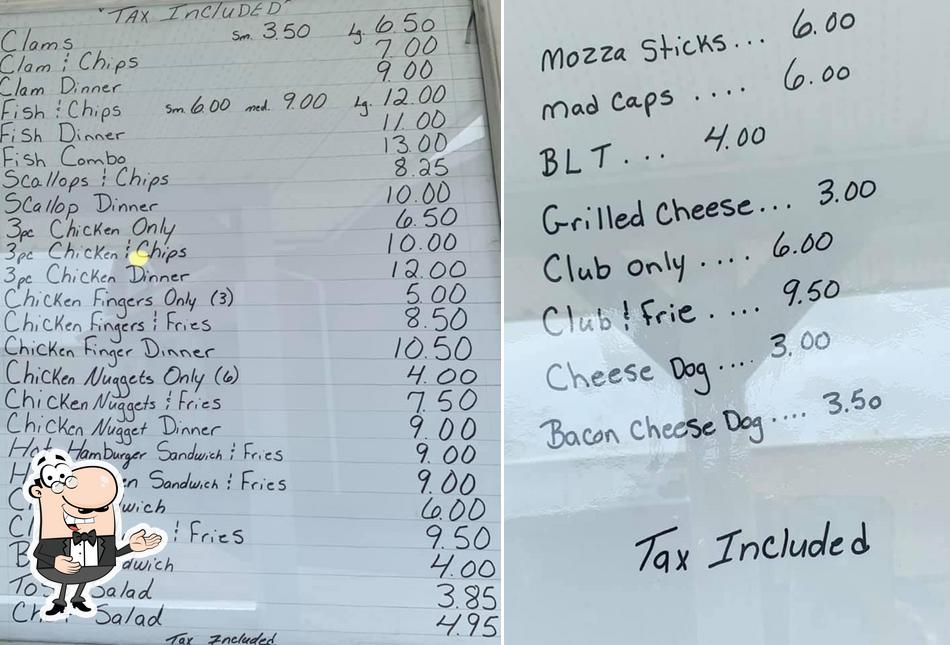 "TAX INCLUDED"
Clams Sm. 3.50 Lg. 6.50
Clam & Chips 7.00
Clam Dinner 9.00
Fish & Chips Sm. 6.00 med. 9.00 Lg. 12.00
Fish Dinner 11.00
Fish Combo 13.00
Scallops & Chips 8.25
Scallop Dinner 10.00
3pc Chicken Only 6.50
3pc Chicken & Chips 10.00
3pc Chicken Dinner 12.00
Chicken Fingers Only (3) 5.00
Chicken Fingers & Fries 8.50
Chicken Finger Dinner 10.50
Chicken Nuggets Only (6) 4.00
Chicken Nuggets & Fries 7.50
Chicken Nugget Dinner 9.00
Hot Hamburger Sandwich & Fries 9.00
Sandwich & Fries 9.00
6.00
& Fries 9.50
4.00
Salad 3.85
Salad 4.95
Tax Included
Mozza Sticks... 6.00
Mad Caps .... 6.00
BLT... 4.00
Grilled Cheese... 3.00
Club only .... 6.00
Club & Frie .... 9.50
Cheese Dog... 3.00
Bacon Cheese Dog.... 3.50
Tax Included